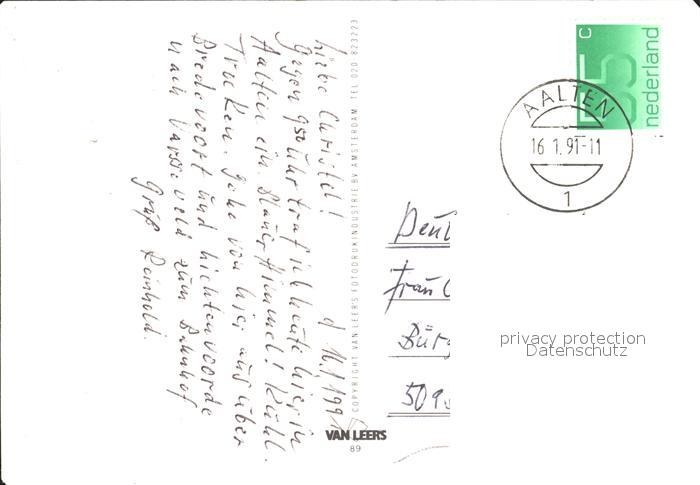 d 16.1.1991
Liebe Christel!
Gegen 9 50 Uhr traf ich heute hier in
Aalten ein. Blauer Himmel! Kühl.
Trocken. Gehe von hier aus über
Bredevoort und Lichtenvoorde
nach Varsseveld zum Bahnhof
Gruß Reinhold.
COPYRIGHT VAN LEER'S FOTODRUKINDUSTRIE BV AMSTERDAM TEL 020 823223
VAN LEERS
89
C
55
nederland
AALTEN
16 1.91-11
1
Deut
Frau C
Bürg
509
privacy protection
Datenschutz